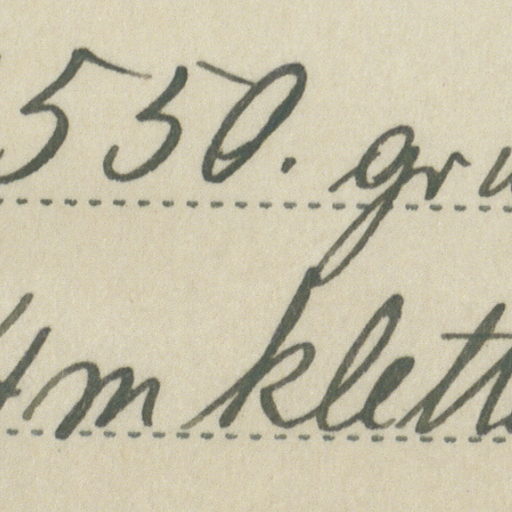 550. gr
4m klett